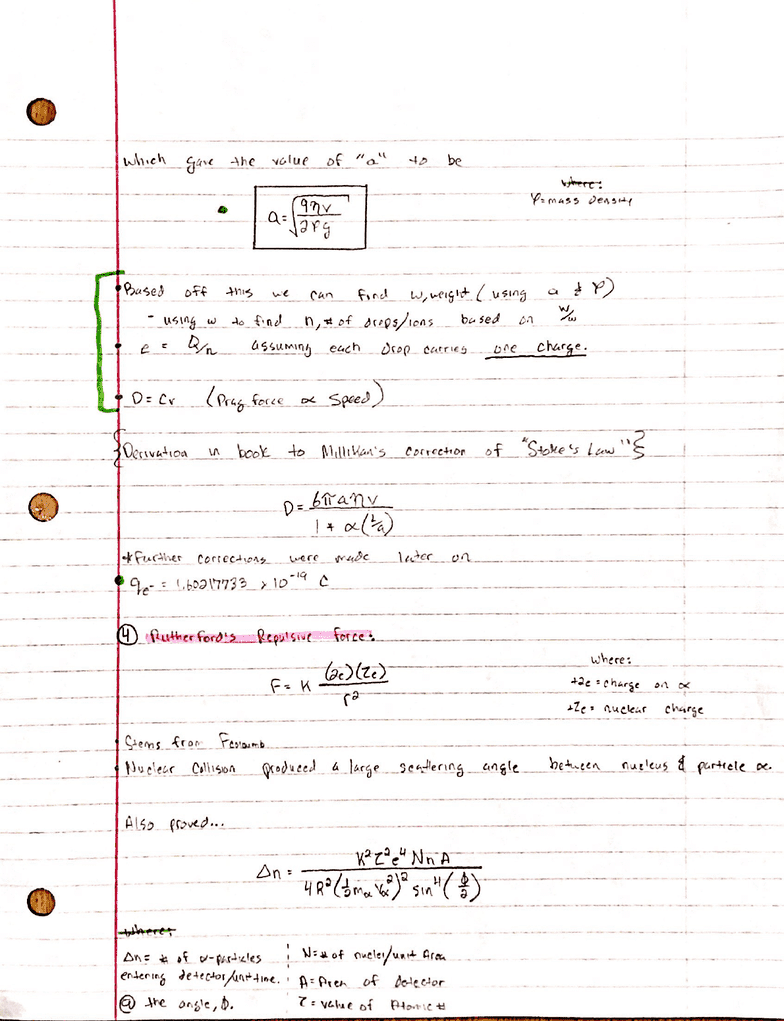 which gave the value of "a" to be
where:
a = √(9ηv / 2ρg)
ρ = mass density
Based off this we can find w, weight (using a & ρ)
- using w to find n, # of drops/ions based on W/w
e = Q/n assuming each drop carries one charge.
D = Cv (Drag force ∝ Speed)
{Derivation in book to Millikan's correction of "Stoke's Law"}
D = 6πaηv / 1 + α(L/a)
*Further corrections were made later on
qe- = 1.60217733 × 10^-19 C
④ Rutherford's Repulsive force:
F = K (2e)(Ze) / r²
where:
+2e = charge on α
+Ze = nuclear charge
Stems from Fcoloumb
Nuclear Collision produced a large scattering angle between nucleus & particle α.
Also proved...
Δn = K²Z²e⁴NnA / 4R²(½mαVα²)² sin⁴(ϕ/2)
where:
Δn = # of α-particles
entering detector/unit time.
@ the angle, ϕ.
N = # of nuclei/unit Area
A = Area of Detector
Z = value of Atomic #